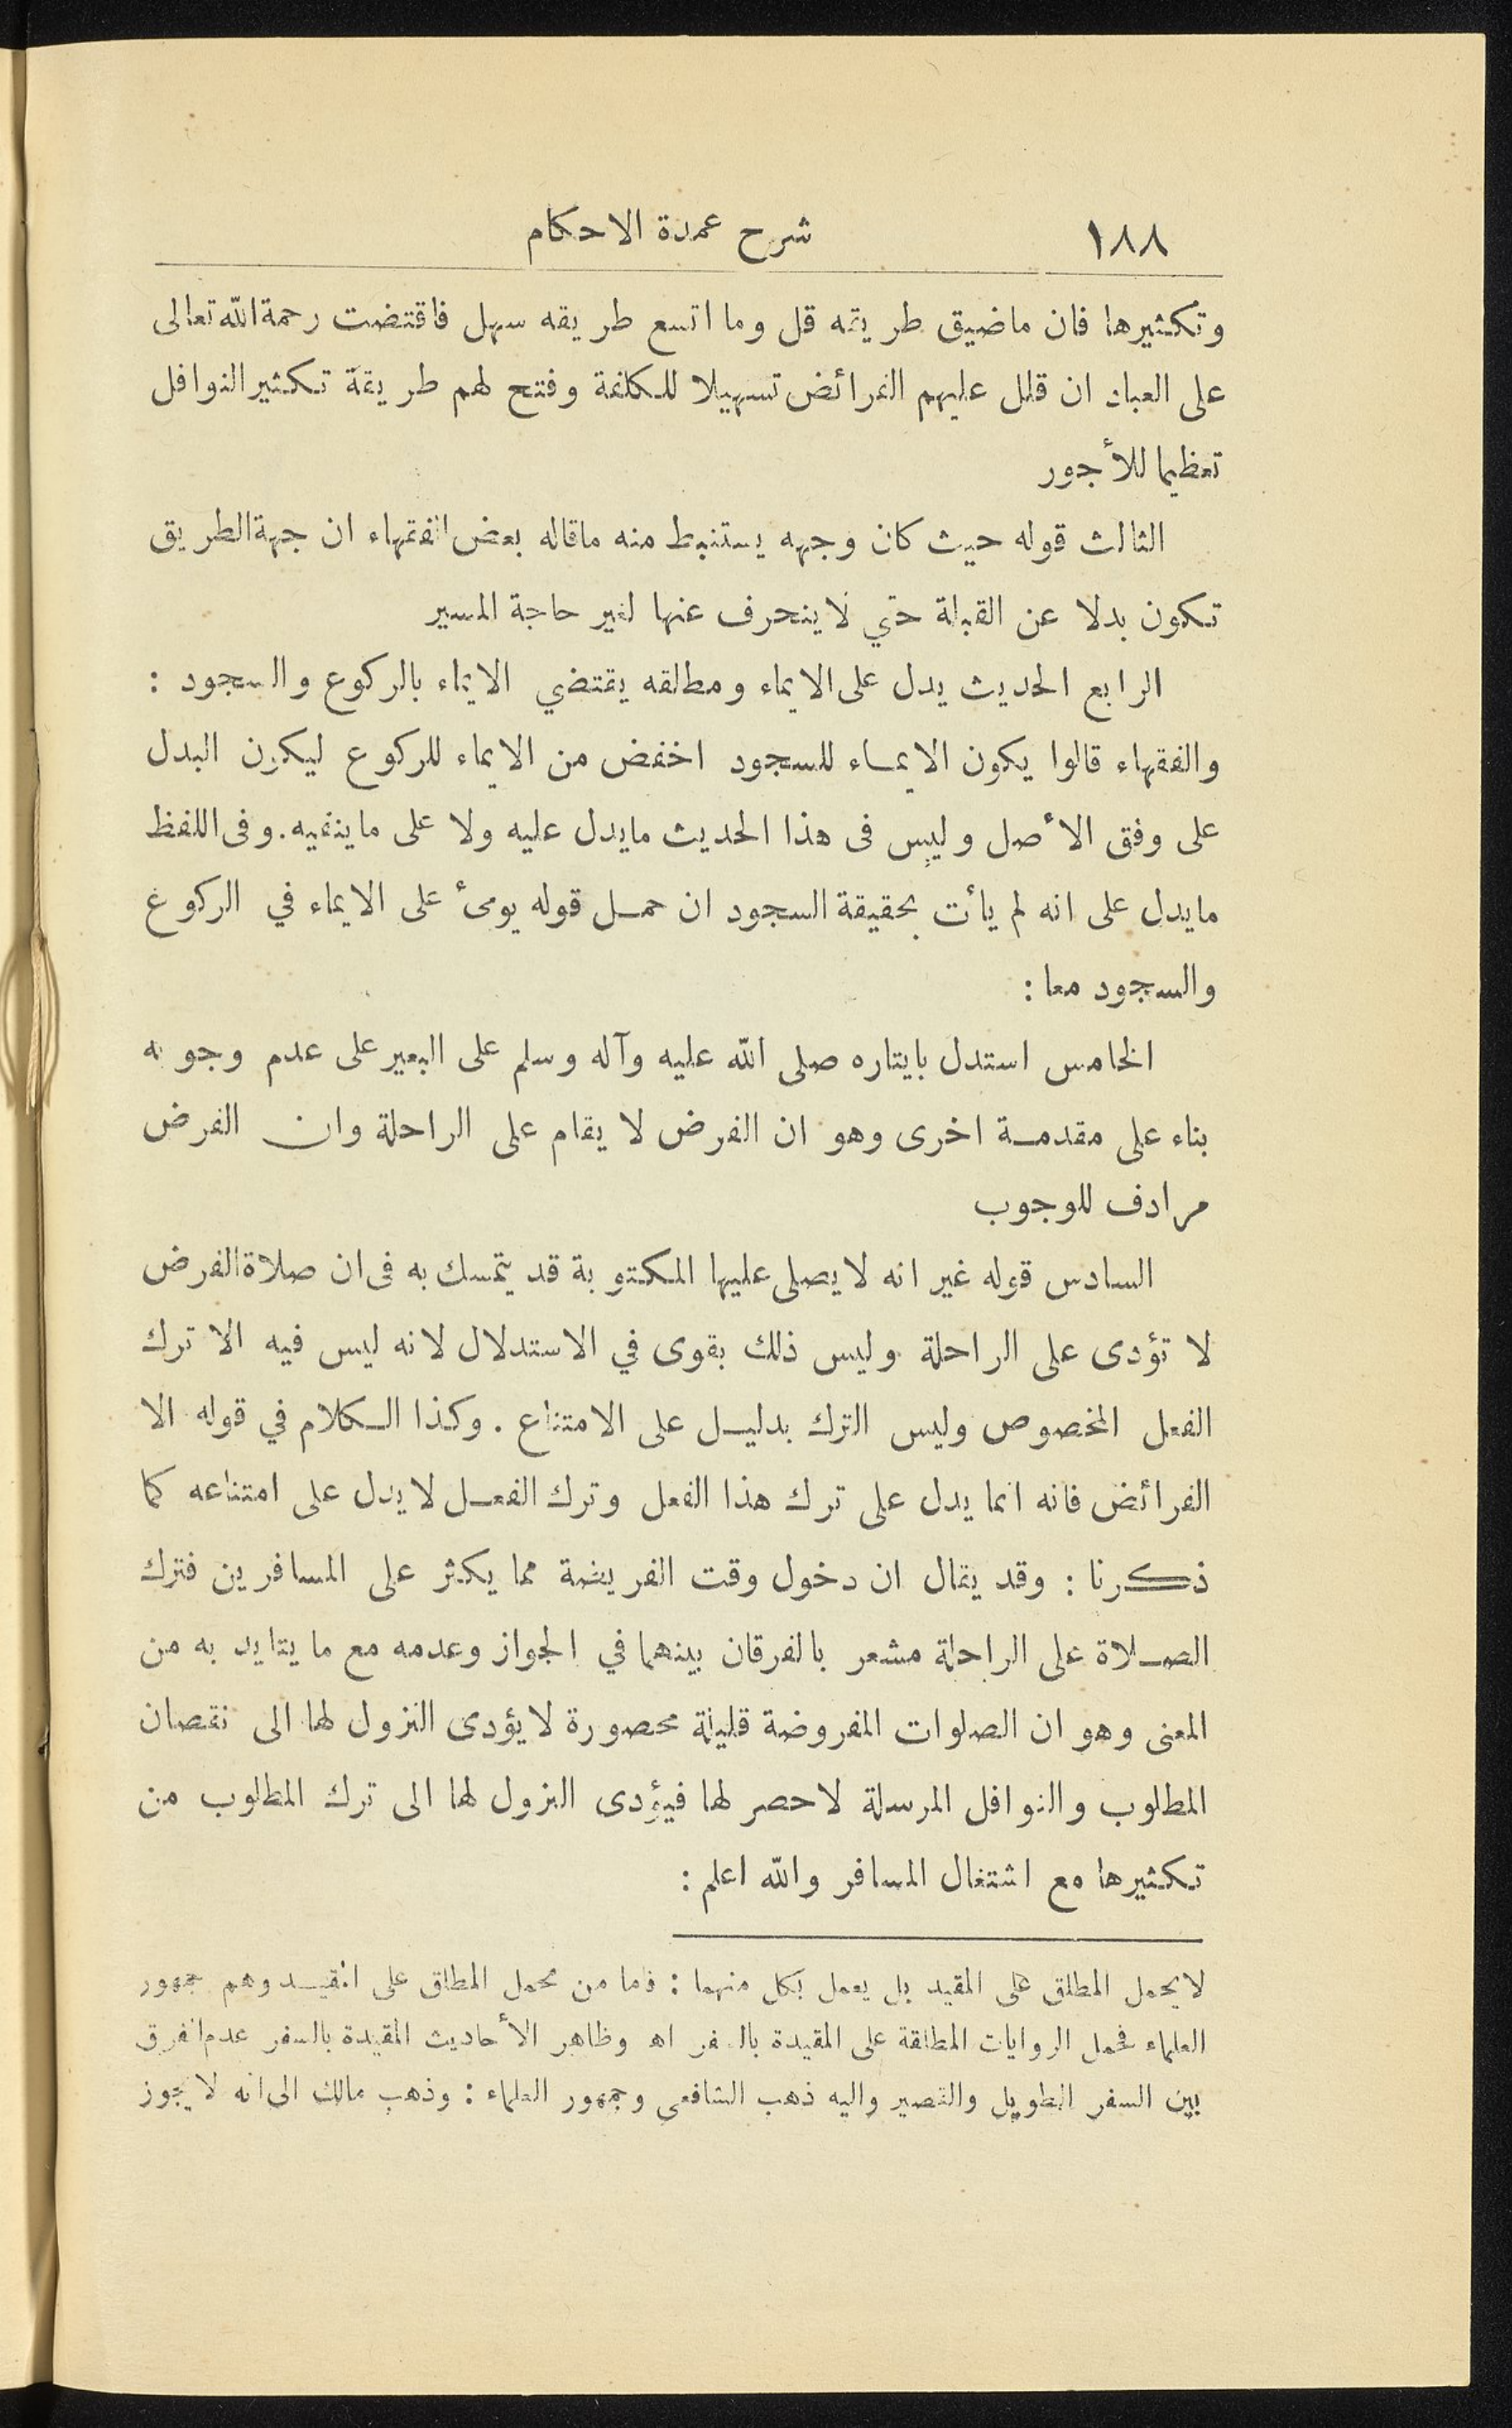 ١٨٨ شرح عمدة الاحكام
وتكثيرها فان ماضيق طريقه قل وما اتسع طريقه سهل فاقتضت رحمة الله تعالى
على العباد ان قلل عليهم الفرائض تسهيلا للكلفة وفتح لهم طريقة تكثير النوافل
تعظيما للأجور
الثالث قوله حيث كان وجهه يستنبط منه ماقاله بعض الفقهاء ان جهة الطريق
تكون بدلا عن القبلة حتي لا ينحرف عنها لغير حاجة المسير
الرابع الحديث يدل على الايماء ومطلقه يقتضي الايماء بالركوع والسجود :
والفقهاء قالوا يكون الايماء للسجود اخفض من الايماء للركوع ليكون البدل
على وفق الأصل وليس فى هذا الحديث مايدل عليه ولا على ماينفيه. وفى اللفظ
مايدل على انه لم يأت بحقيقة السجود ان حمل قوله يومئ على الايماء في الركوع
والسجود معا :
الخامس استدل بايتاره صلى الله عليه وآله وسلم على البعير على عدم وجوبه
بناء على مقدمة اخرى وهو ان الفرض لا يقام على الراحلة وان الفرض
مرادف للوجوب
السادس قوله غير انه لا يصلى عليها المكتوبة قد يتمسك به فى ان صلاة الفرض
لا تؤدى على الراحلة وليس ذلك بقوى في الاستدلال لانه ليس فيه الا ترك
الفعل المخصوص وليس الترك بدليل على الامتناع . وكذا الكلام في قوله الا
الفرائض فانه انما يدل على ترك هذا الفعل وترك الفعل لا يدل على امتناعه كما
ذكرنا : وقد يقال ان دخول وقت الفريضة مما يكثر على المسافرين فترك
الصلاة على الراحلة مشعر بالفرقان بينهما في الجواز وعدمه مع ما يتايد به من
المعنى وهو ان الصلوات المفروضة قليلة محصورة لا يؤدى النزول لها الى نقصان
المطلوب والنوافل المرسلة لا حصر لها فيؤدى النزول لها الى ترك المطلوب من
تكثيرها مع اشتغال المسافر والله اعلم :
لا يحمل المطلق على المقيد بل يعمل بكل منهما : فاما من يحمل المطلق على المقيد وهم جمهور
العلماء فحمل الروايات المطلقة على المقيدة بالسفر اه وظاهر الأحاديث المقيدة بالسفر عدم الفرق
بين السفر الطويل والقصير واليه ذهب الشافعى وجمهور العلماء : وذهب مالك الى انه لا يجوز